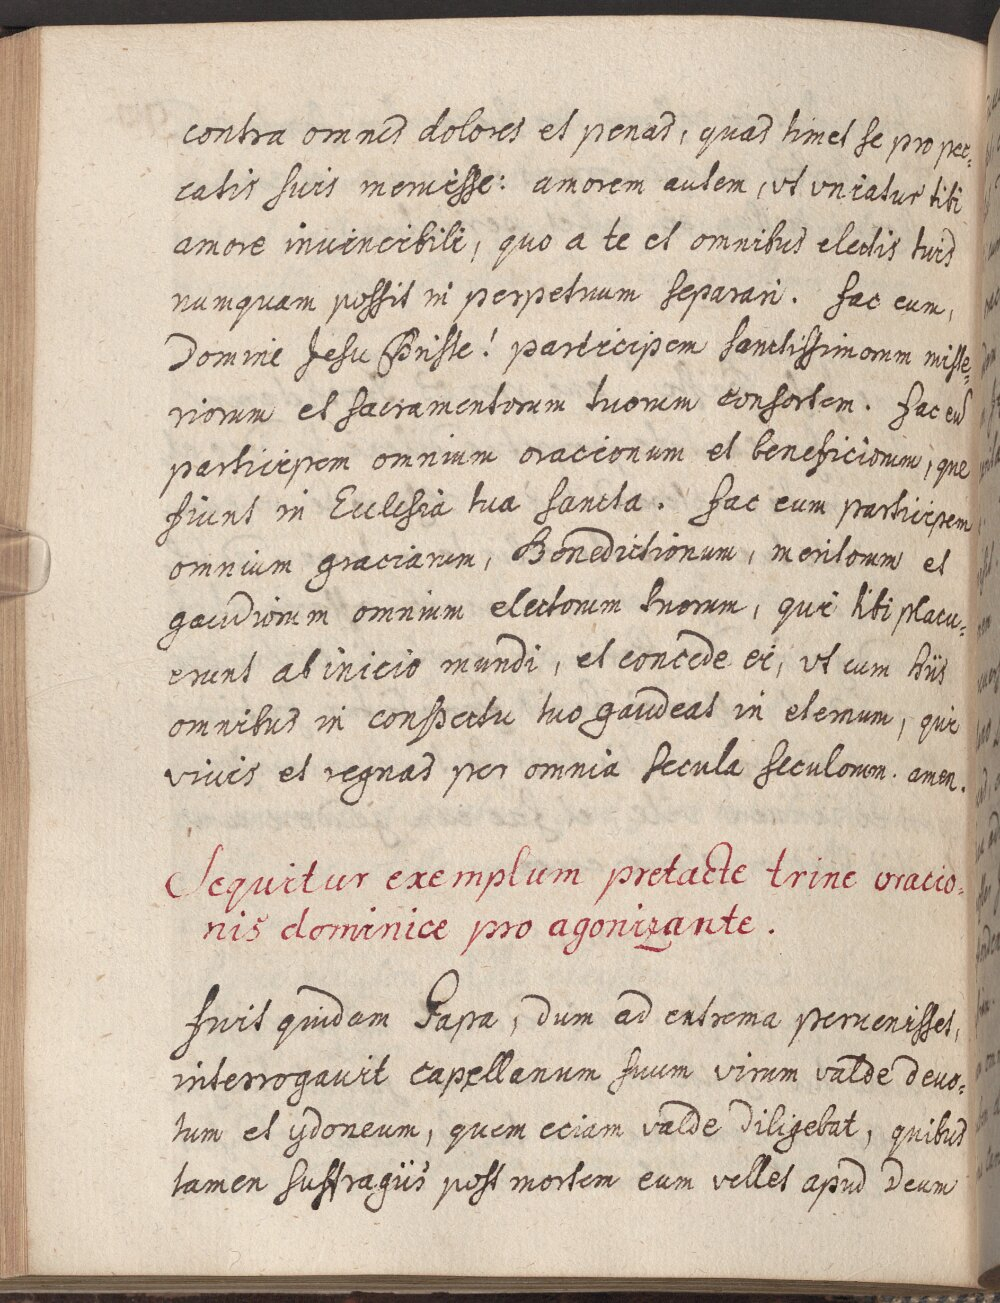 contra omnes dolores et penas, quas timet se pro pec-
catis suis meruisse: amorem autem, vt vniatur tibi
amore invincibili, quo a te et omnibus electis tuis
numquam possit in perpetuum separari. fac eum,
Domine Jesu Christe! participem sanctissimorum miste-
riorum et sacramentorum tuorum consortem. fac eum
participem omnium oracionum et beneficiorum, que
fiunt in Ecclesia tua sancta. fac eum participem
omnium graciarum, Benedictionum, meritorum et
gaudiorum omnium electorum tuorum, qui tibi placu-
erunt ab inicio mundi, et concede ei, vt cum hiis
omnibus in conspectu tuo gaudeat in eternum, qui
vivis et regnas per omnia secula seculorum. amen.
Sequitur exemplum pretacte trine oracio-
nis dominice pro agonizante.
fuit quidam Papa, dum ad extrema pervenisset,
interrogavit capellanum suum virum valde devo-
tum et ydoneum, quem eciam valde diligebat, quibus
tamen suffragiis post mortem eum vellet apud Deum